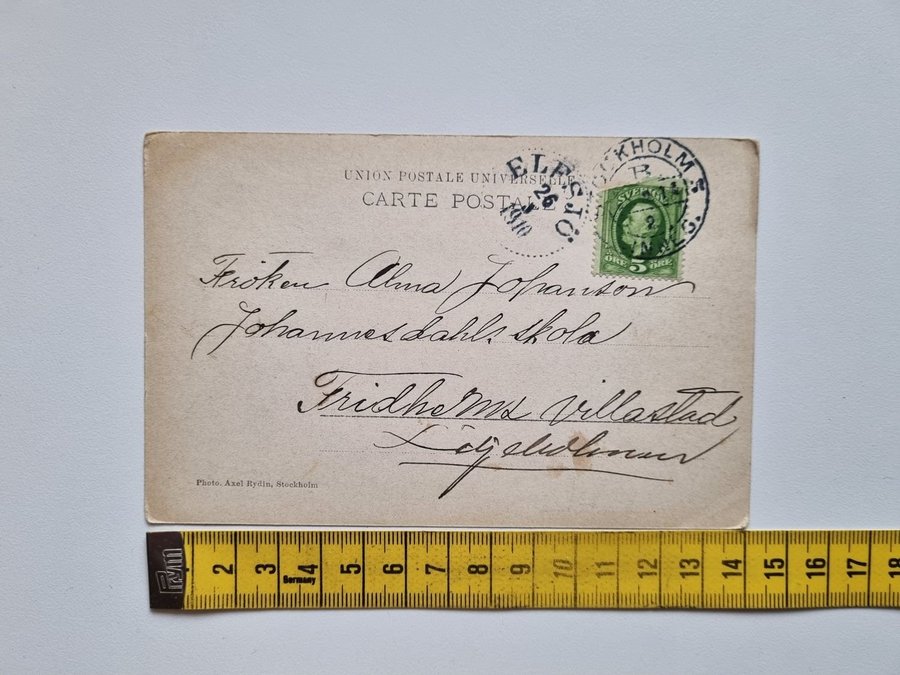 UNION POSTALE UNIVERSELLE
CARTE POSTALE
ELFSJÖ
26
1910
STOCKHOLM
SVERIGE
ÖRE 5 ÖRE
Fröken Alma Johanson
Johannesdahls skola
Fridhems villastad
Liljeholmen
Photo. Axel Rydin, Stockholm
2 3 4 5 6 7 8 9 10 11 12 13 14 15 16 17 18
Germany